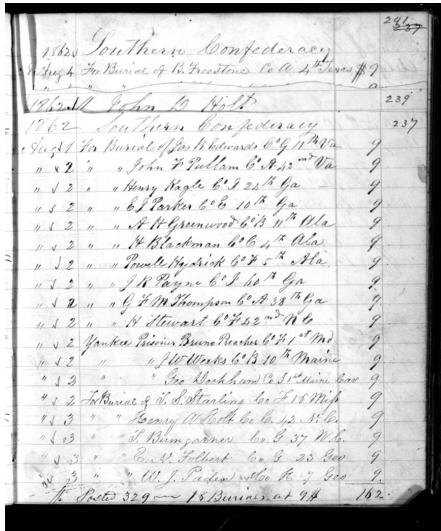 241
237
1862 Southern Confederacy
Aug 4 For Burial of B. Freestone Co A 4th Texas $9
1862 John D Holt 239
1862 Southern Confederacy 237
Aug 1 For Burial of Jas R Edwards Co G 11th Va 9
" " 2 " " John F Pullam Co A 42nd Va 9
" " 2 " " Henry Kagle Co I 24th Ga 9
" " 2 " " E J Parker Co E 10th Ga 9
" " 2 " " A H Greenwood Co B 11th Ala 9
" " 2 " " H Blackman Co C 4th Ala 9
" " 2 " " Powell Hydrick Co F 5th Ala. 9
" " 2 " " J R Payne Co I 60th Ga 9
" " 2 " " G F M Thompson Co A 38th Ga 9
" " 2 " " H Stewart Co F 42nd N C 9
" " 2 Yankee Prisoner Bruno Reacher Co F 1st Md 9
" " 2 " " J W Weeks Co B 10th Maine 9
" " 2 " " Geo Dockham Co I 1st Maine Cav 9
" " 2 For Burial of T. S. Stealing Co F 15 Miss 9
" " 3 " " Henry A Holt Co C. 42 N.C. 9
" " 3 " " T. Bumgarner Co G 37 N.C. 9
" " 3 " " E. V. Folbert Co G 23 Geo 9
" 3 " " W. J. Paden Co K 7 Geo 9
Posted 329 — 18 Burials at 9$ 162.